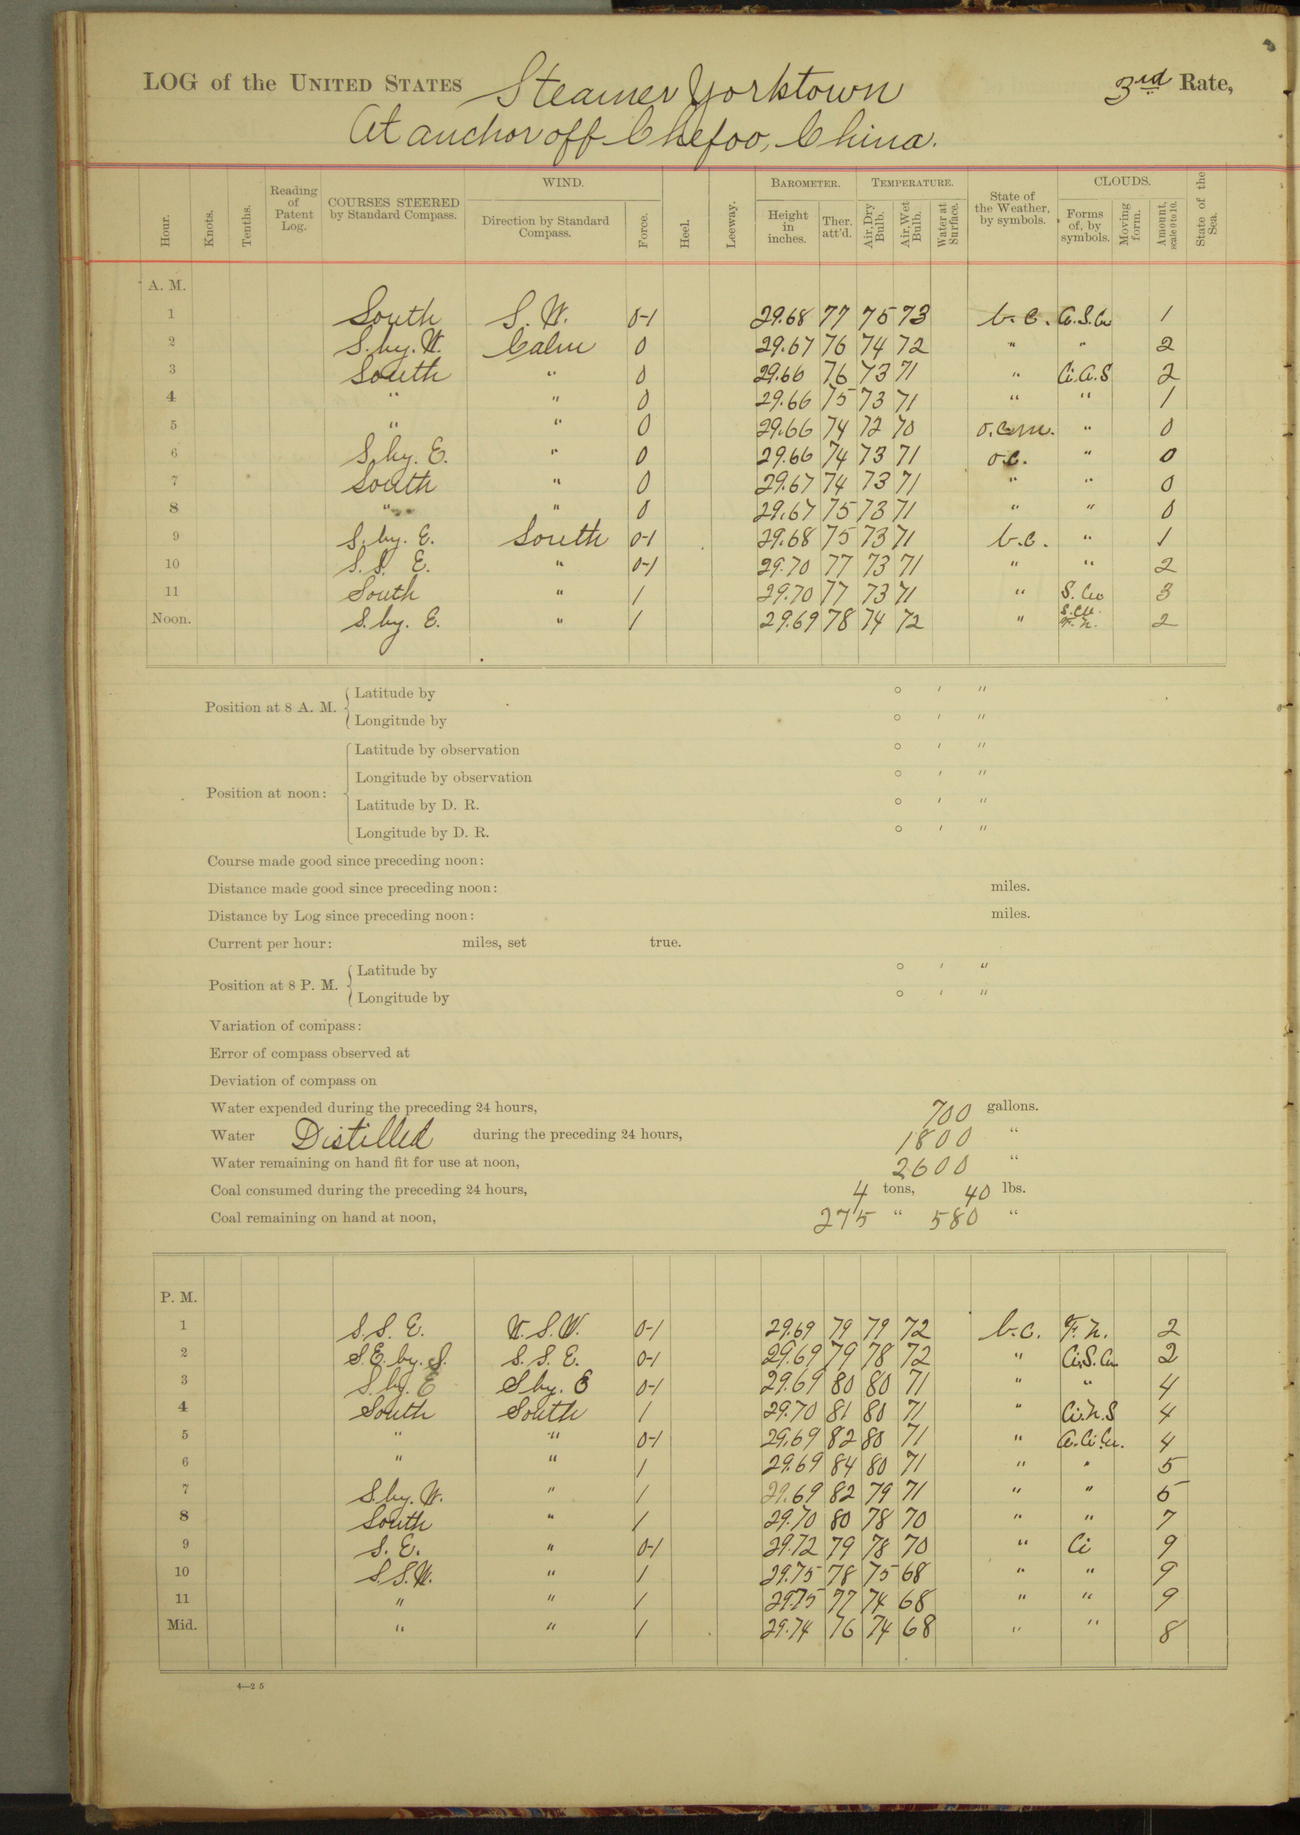 LOG of the UNITED STATES Steamer Yorktown 3rd Rate,
At anchor off Chefoo, China.
Hour. Knots. Tenths. Reading of Patent Log. COURSES STEERED by Standard Compass. WIND. Direction by Standard Compass. Force. Heel. Leeway. BAROMETER. Height in inches. Ther. att'd. TEMPERATURE. Air, Dry Bulb. Air, Wet Bulb. Water at Surface. State of the Weather, by symbols. CLOUDS. Forms of, by symbols. Moving form. Amount, scale 0 to 10. State of the Sea.
A. M.
1 South S. W. 0-1 29.68 77 75 73 b. c. 1
2 S. by. W. Calm 0 29.67 76 74 72 " " 2
3 South " 0 29.66 76 73 71 " Ci. A. S 2
4 " " 0 29.66 75 73 71 " " 1
5 " " 0 29.66 74 72 70 o. c. m. " 0
6 S. by. E. " 0 29.66 74 73 71 o. c. " 0
7 South " 0 29.67 74 73 71 " " 0
8 " " 0 29.67 75 73 71 " " 0
9 S. by. E. South 0-1 29.68 75 73 71 b. c. " 1
10 S. S. E. " 0-1 29.70 77 73 71 " " 2
11 South " 1 29.70 77 73 71 " S. Cu 3
Noon. S. by. E. " 1 29.69 78 74 72 " S. Cu. Fr. N. 2
Position at 8 A. M. Latitude by ° ′ ″
Longitude by ° ′ ″
Latitude by observation ° ′ ″
Longitude by observation ° ′ ″
Position at noon:
Latitude by D. R. ° ′ ″
Longitude by D. R. ° ′ ″
Course made good since preceding noon:
Distance made good since preceding noon: miles.
Distance by Log since preceding noon: miles.
Current per hour: miles, set true.
Position at 8 P. M. Latitude by ° ′ ″
Longitude by ° ′ ″
Variation of compass:
Error of compass observed at
Deviation of compass on
Water expended during the preceding 24 hours, 700 gallons.
Water Distilled during the preceding 24 hours, 1800 "
Water remaining on hand fit for use at noon, 2600 "
Coal consumed during the preceding 24 hours, 4 tons, 40 lbs.
Coal remaining on hand at noon, 275 " 580 "
P. M.
1 S. S. E. W. S. W. 0-1 29.69 79 79 72 b. c. Fr. N. 2
2 S. E. by. S. S. S. E. 0-1 29.69 79 78 72 " Ci. S. Cu 2
3 S. by. E S by. E 0-1 29.69 80 80 71 " " 4
4 South South 1 29.70 81 80 71 " Ci. N. S 4
5 " " 0-1 29.69 82 80 71 " A. Ci. Cu. 4
6 " " 1 29.69 84 80 71 " " 5
7 S. by. W. " 1 29.69 82 79 71 " " 5
8 South " 1 29.70 80 78 70 " " 7
9 S. E. " 0-1 29.72 79 78 70 " Ci 9
10 S. S. W. " 1 29.75 78 75 68 " " 9
11 " " 1 29.75 77 74 68 " " 9
Mid. " " 1 29.74 76 74 68 " " 8
4—2 5